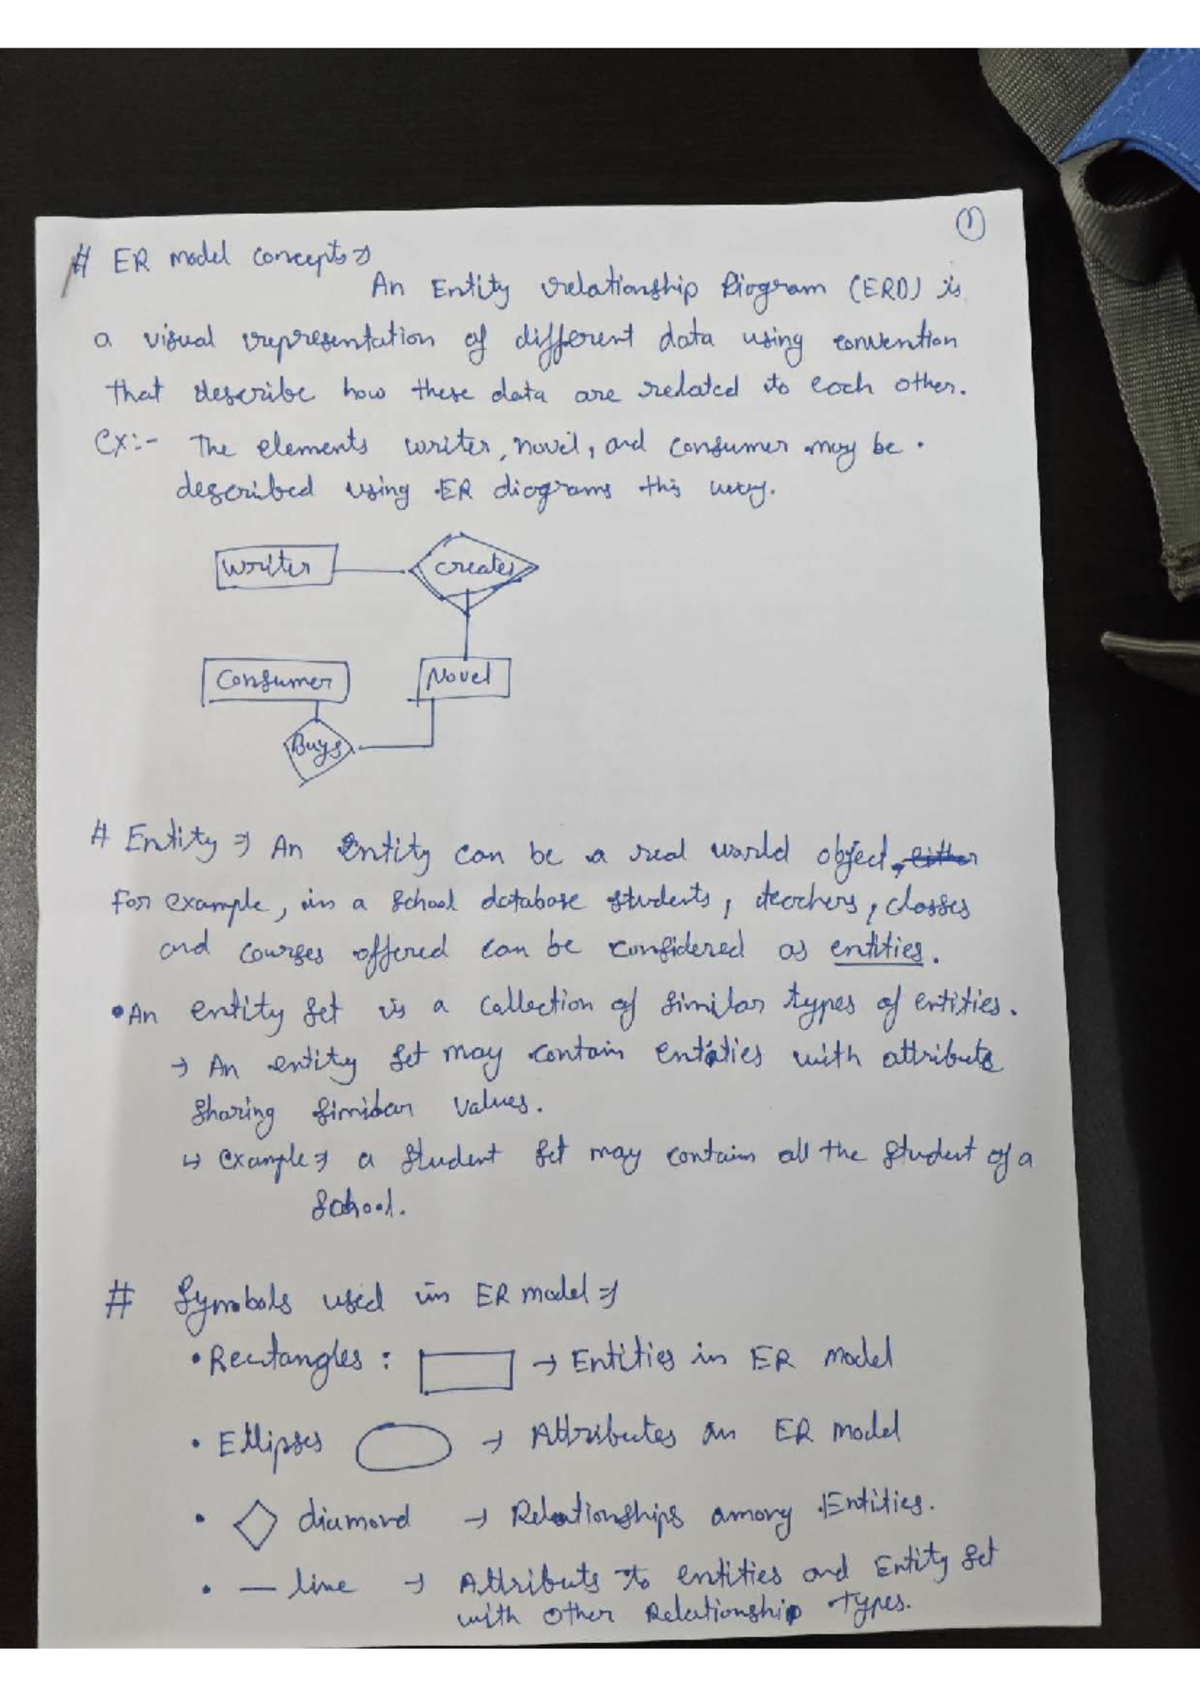 ①
# ER model concepts ⇒
An Entity relationship Diogram (ERD) is
a visual representation of different data using convention
that describe how these data are related to each other.
Ex:- The elements writer, novel, and consumer may be
described using ER diograms this way.
Writer
creates
Consumer
Novel
Buys
# Entity ⇒ An Entity can be a real world object, either
For example, in a School database students, teachers, classes
and courses offered can be considered as entities.
• An entity set is a collection of similar types of entities.
→ An entity set may contain entities with attribute
sharing similar values.
↳ example ⇒ a student set may contain all the student of a
School.
# Symbols used in ER model ⇒
• Rectangles : → Entities in ER model
• Ellipses → Attributes in ER model
• diamond → Relationships among Entities.
• — line → Attributs to entities and Entity set
with other Relationship Types.